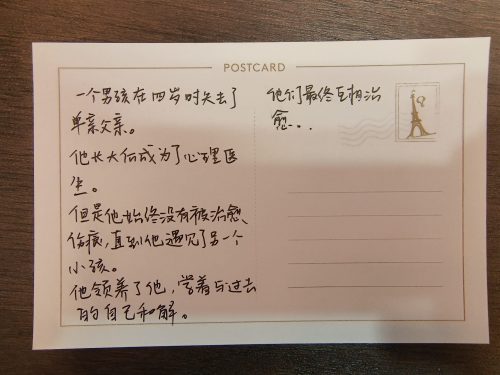 POSTCARD
一个男孩在四岁时失去了
单亲父亲。
他长大后成为了心理医
生。
但是他始终没有被治愈、
伤痕,直到他遇见了另一个
小孩。
他领养了他,学着与过去
的自己和解。
他们最终互相治
愈...